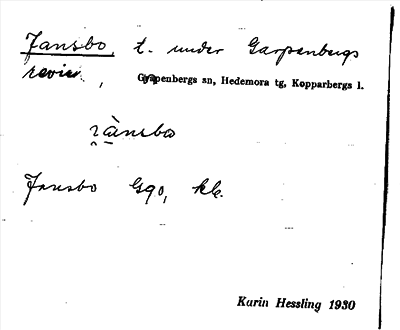 Jansbo, t. under Garpenbergs
revir,
Garpenbergs sn, Hedemora tg, Kopparbergs l.
Jansbo Gqo, kk.
Karin Hessling 1930